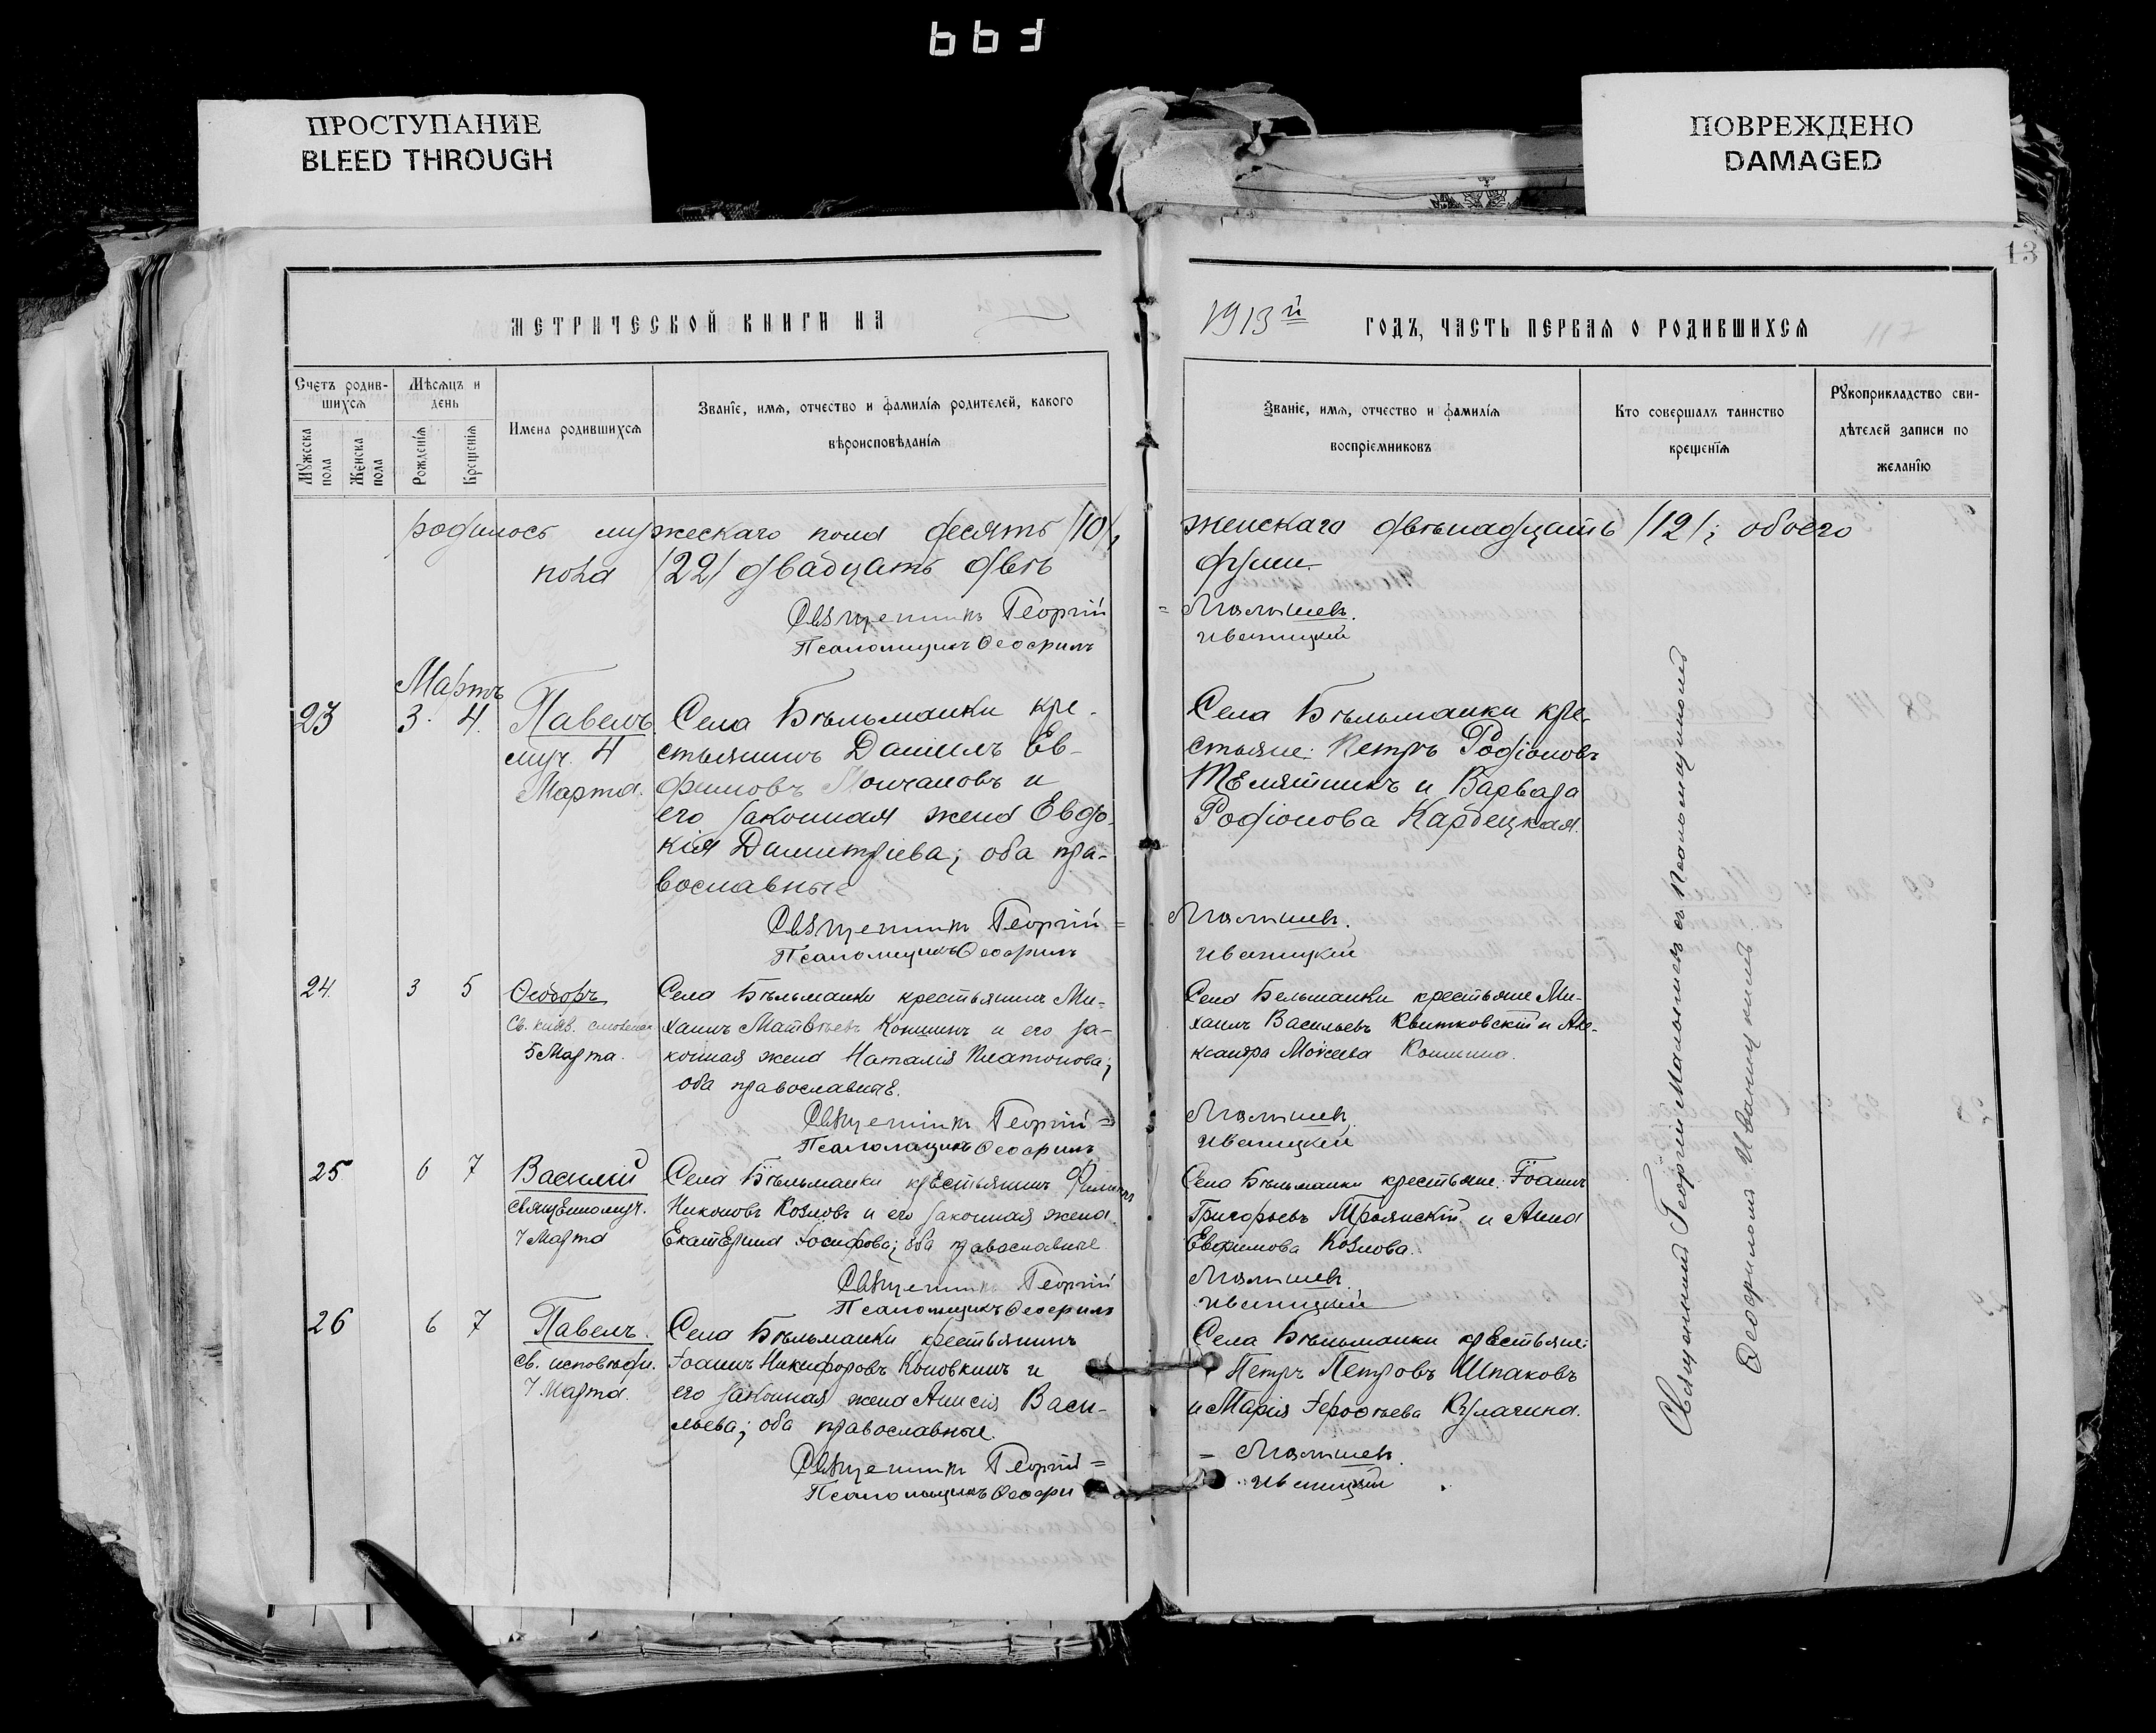 667
ПРОСТУПАНИЕ
BLEED THROUGH
ПОВРЕЖДЕНО
DAMAGED
13
МЕТРИЧЕСКОЙ КНИГИ НА
1913й
ГОДЪ, ЧАСТЬ ПЕРВАЯ О РОДИВШИХСЯ
Счетъ родив-
шихся
Мужеска пола
Женска пола
Мѣсяцъ и
день
Рожденія
Крещенія
Имена родившихся
Званіе, имя, отчество и фамилія родителей, какого
вѣроисповѣданія
Званіе, имя, отчество и фамилія
воспріемниковъ
Кто совершалъ таинство
крещенія
Рукоприкладство сви-
дѣтелей записи по
желанію
родилось мужескаго пола десять /10/,
женскаго двѣнадцать /12/; обоего
пола /22/ двадцать двѣ
души.
Священникъ Георгій
= Малышевъ.
Псаломщикъ Ѳеофилъ
Иваницкій
Мартъ
23
3. 4.
Павелъ
муч. 4
Марта.
Села Бѣльманки кре-
стьянинъ Даніилъ Ев-
фимовъ Молчановъ и
его законная жена Евдо-
кія Димитріева; оба пра-
вославные
Села Бѣльманки кре-
стьяне: Петръ Родіоновъ
Телятникъ и Варвара
Родіонова Карбецкая.
Священникъ Георгій =
Малышевъ.
Псаломщикъ Ѳеофилъ
Иваницкій
24.
3 5
Ѳеодоръ
Св. княз. смоленск
5 Марта.
Села Бѣльманки крестьянинъ Ми-
хаилъ Матвѣевъ Коншинъ и его за-
конная жена Наталія Платонова;
оба православные.
Села Бельманки крестьяне Ми-
хаилъ Васильевъ Квитковскій и Але-
ксандра Моисеева Коншина.
Священникъ Георгій =
Малышевъ.
Псаломщикъ Ѳеофилъ
Иваницкій
25
6 7
Василій
священномуч.
7 Марта
Села Бѣльманки крестьянинъ Филиппъ
Никоновъ Козловъ и его законная жена
Екатерина Іосифова; оба православные
Села Бѣльманки крестьяне: Іоаннъ
Григорьевъ Троянскій и Анна
Евфимова Козлова.
Священникъ Георгій
Малышевъ.
Псаломщикъ Ѳеофилъ
Иваницкій
26
6 7
Павелъ.
св. исповѣдн.
7 Марта.
Села Бѣльманки крестьянинъ
Іоаннъ Никифоровъ Коновкинъ и
его законная жена Анисія Васи-
льева; оба православные.
Села Бѣльманки крестьяне:
Петръ Петровъ Шпаковъ
и Марія Іероѳѣева Кулагина.
Священникъ Георгій =
= Малышевъ.
Псаломщикъ Ѳеофи
Иваницкій
Священникъ Георгій Малышевъ съ Псаломщикомъ
Ѳеофиломъ Иваницкимъ